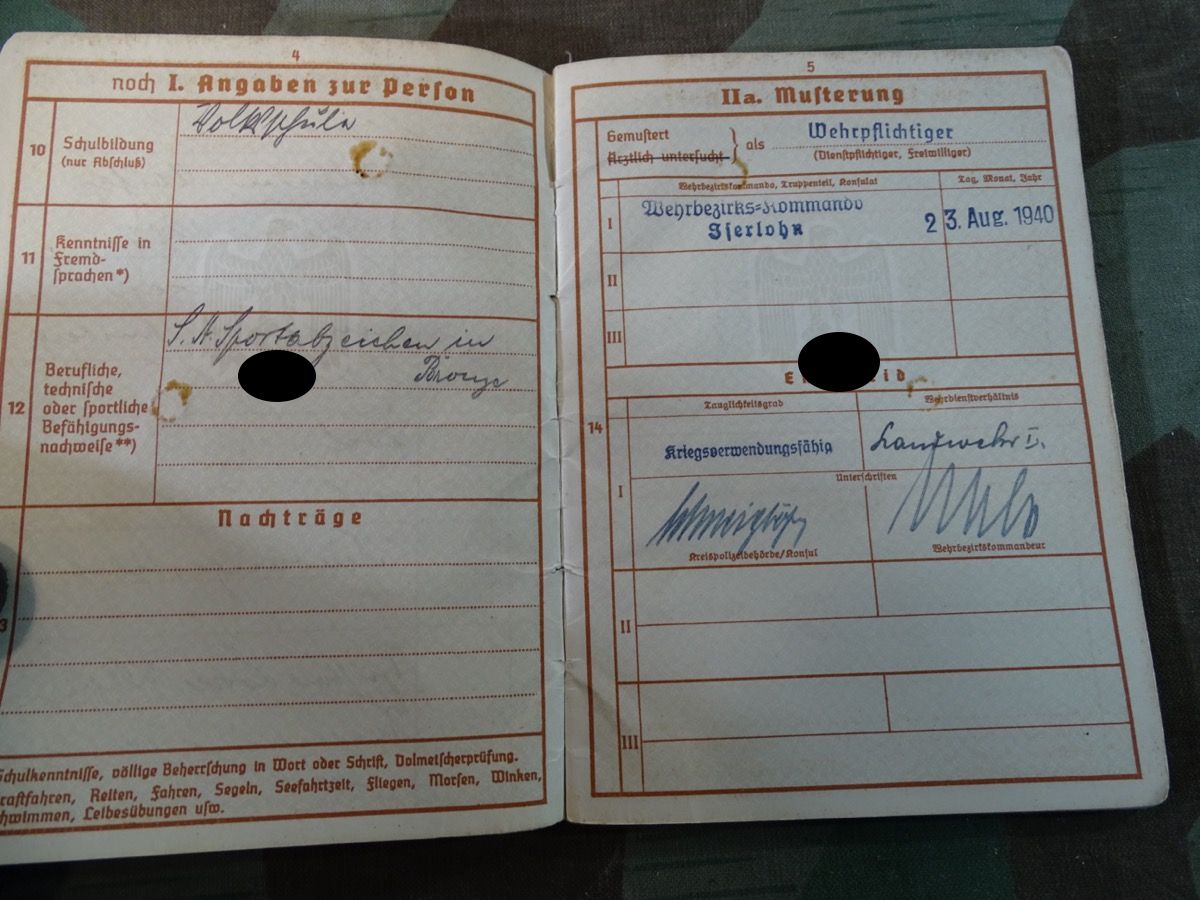 4
noch I. Angaben zur Person
10
Schulbildung
(nur Abschluß)
Volksschule
11
Kenntnisse in
Fremd-
sprachen*)
12
Berufliche,
technische
oder sportliche
Befähigungs-
nachweise**)
S.A. Sportabzeichen in
Bronze
Nachträge
3
Schulkenntnisse, völlige Beherrschung in Wort oder Schrift, Dolmetscherprüfung.
raftfahren, Reiten, Fahren, Segeln, Seefahrtzeit, Fliegen, Morsen, Winken,
hwimmen, Leibesübungen usw.
5
IIa. Musterung
Gemustert
Ärztlich untersucht
als
Wehrpflichtiger
(Dienstpflichtiger, Freiwilliger)
Wehrbezirkskommando, Truppenteil, Konsulat
Tag, Monat, Jahr
I
Wehrbezirks-Kommando
Iserlohn
23. Aug. 1940
II
III
E id
14
Tauglichkeitsgrad
Wehrdienstverhältnis
I
Kriegsverwendungsfähig
Landwehr I.
Unterschriften
Kreispolizeibehörde/Konsul
Wehrbezirkskommandeur
II
III